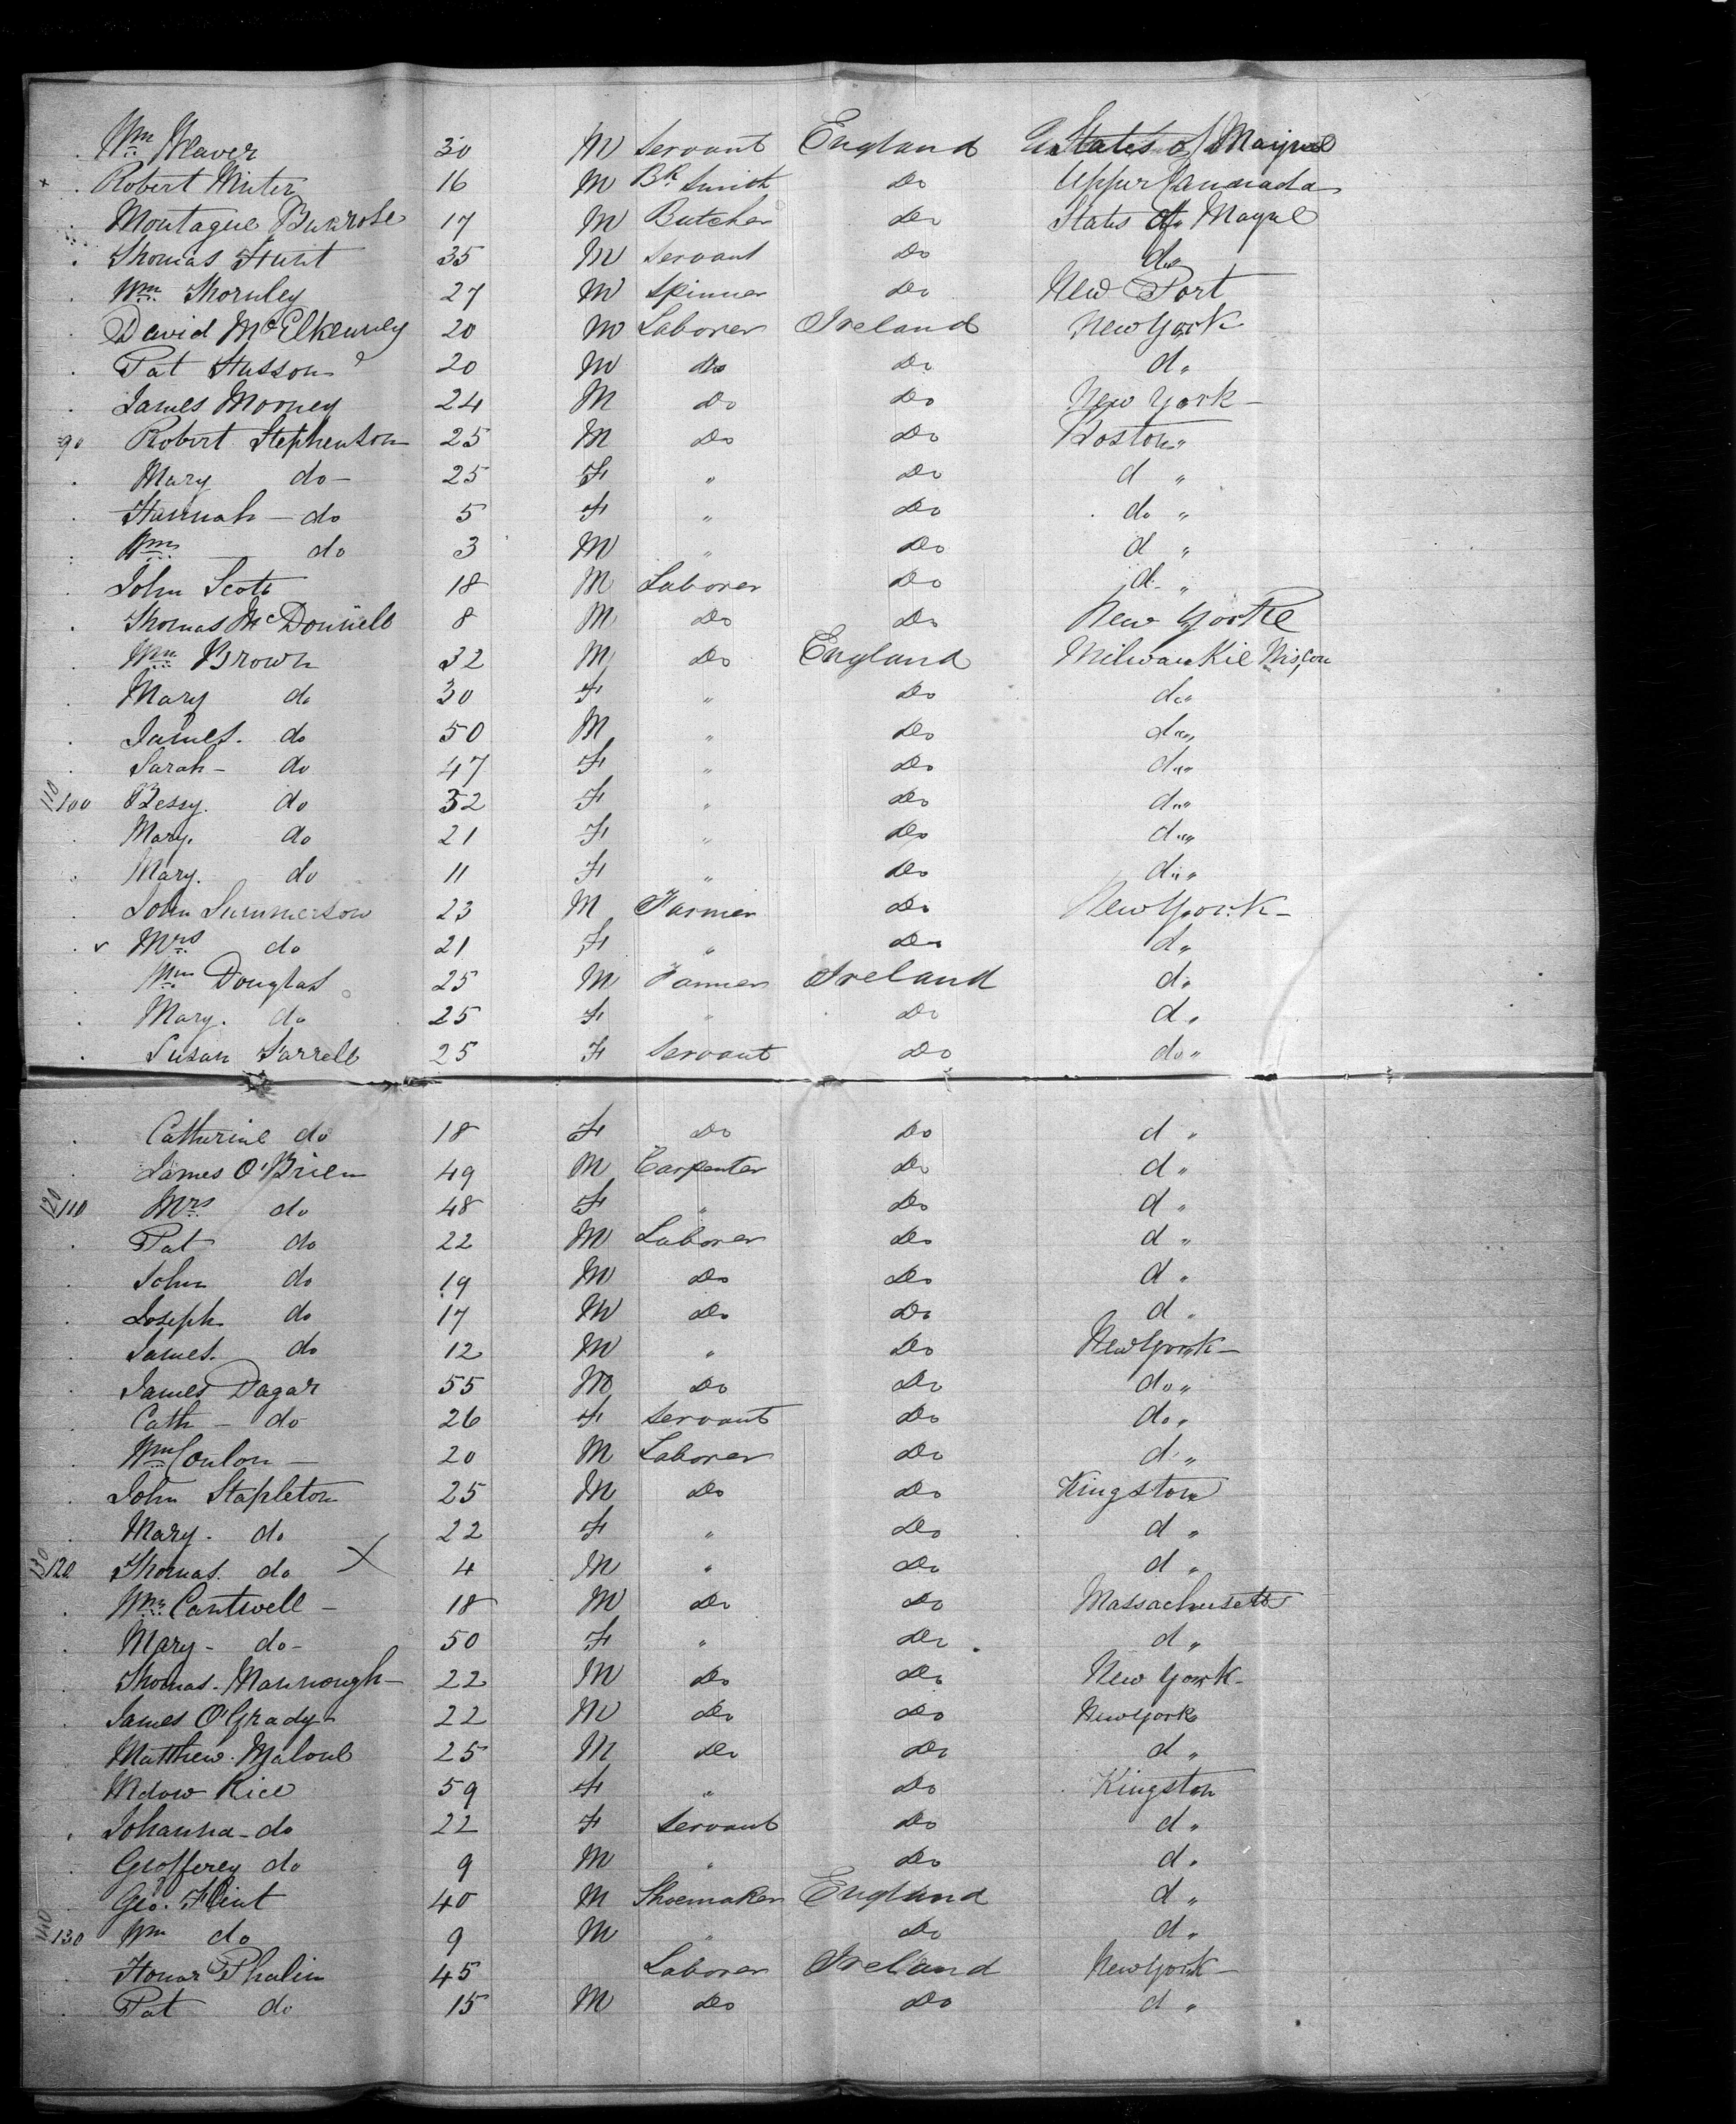 Wm Weaver 30 M Servant England States of Mayne
Robert Winter 16 M Bk Smith Do Upper Cannada
Montague 17 M Butcher Do States of Mayne
Thomas Hunt 35 M Servant Do do
Wm Thornley 27 M Spinner Do New Port
David McElkenney 20 M Laborer Ireland New York
Pat Husson 20 M Do Do d "
James Mooney 24 M Do Do New York -
90 Robert Stephenson 25 M Do Do Boston "
Mary do - 25 F " Do d "
Hannah - do 5 F " Do do "
Wm do 3 M " Do d "
John Scott 18 M Laborer Do d "
Thomas McDonnell 8 M Do Do New Yorke
Wm Brown 32 M Do England Milwaukie Wiscon
Mary do 30 F " Do do "
James. do 50 M " Do do "
Sarah - do 47 F " Do do "
110/100 Bessy. do 32 F " Do do "
Mary. do 21 F " Do do "
Mary. do 11 F " Do do "
John Summerson 23 M Farmer Do New York -
v Mrs do 21 F " Do d "
Wm Douglas 25 M Farmer Ireland do
Mary. do 25 F " Do d "
Susan Farrell 25 F Servant Do do "
Catherine do 18 F Do Do d "
James O'Brien 49 M Carpenter Do d "
120/110 Mrs do 48 F " Do d "
Pat do 22 M Laborer Do d "
John do 19 M Do Do d "
Joseph do 17 M Do Do d "
James. do 12 M " Do New York -
James Dagar 55 M Do Do do "
Cath - do 26 F Servant Do do "
Wm Conlon - 20 M Laborer Do d "
John Stapleton 25 M Do Do Kingston
Mary. do 22 F " Do d "
130/120 Thomas. do X 4 M " Do d "
Wm Cantwell - 18 M Do Do Massachusetts
Mary - do - 50 F " Do d "
Thomas. Mannough - 22 M Do Do New York -
James O'Grady - 22 M Do Do New York
Matthew. Malone 25 M Do Do d "
Widow Rice 59 F " Do Kingston
Johanna - do 22 F Servant Do d "
Geofferey do 9 M " Do d "
Geo. Flint 40 M Shoemaker England d "
140/130 Wm do 9 M " Do d "
Honor Phalin 45 Laborer Ireland New York -
Pat do 15 M Do Do d "